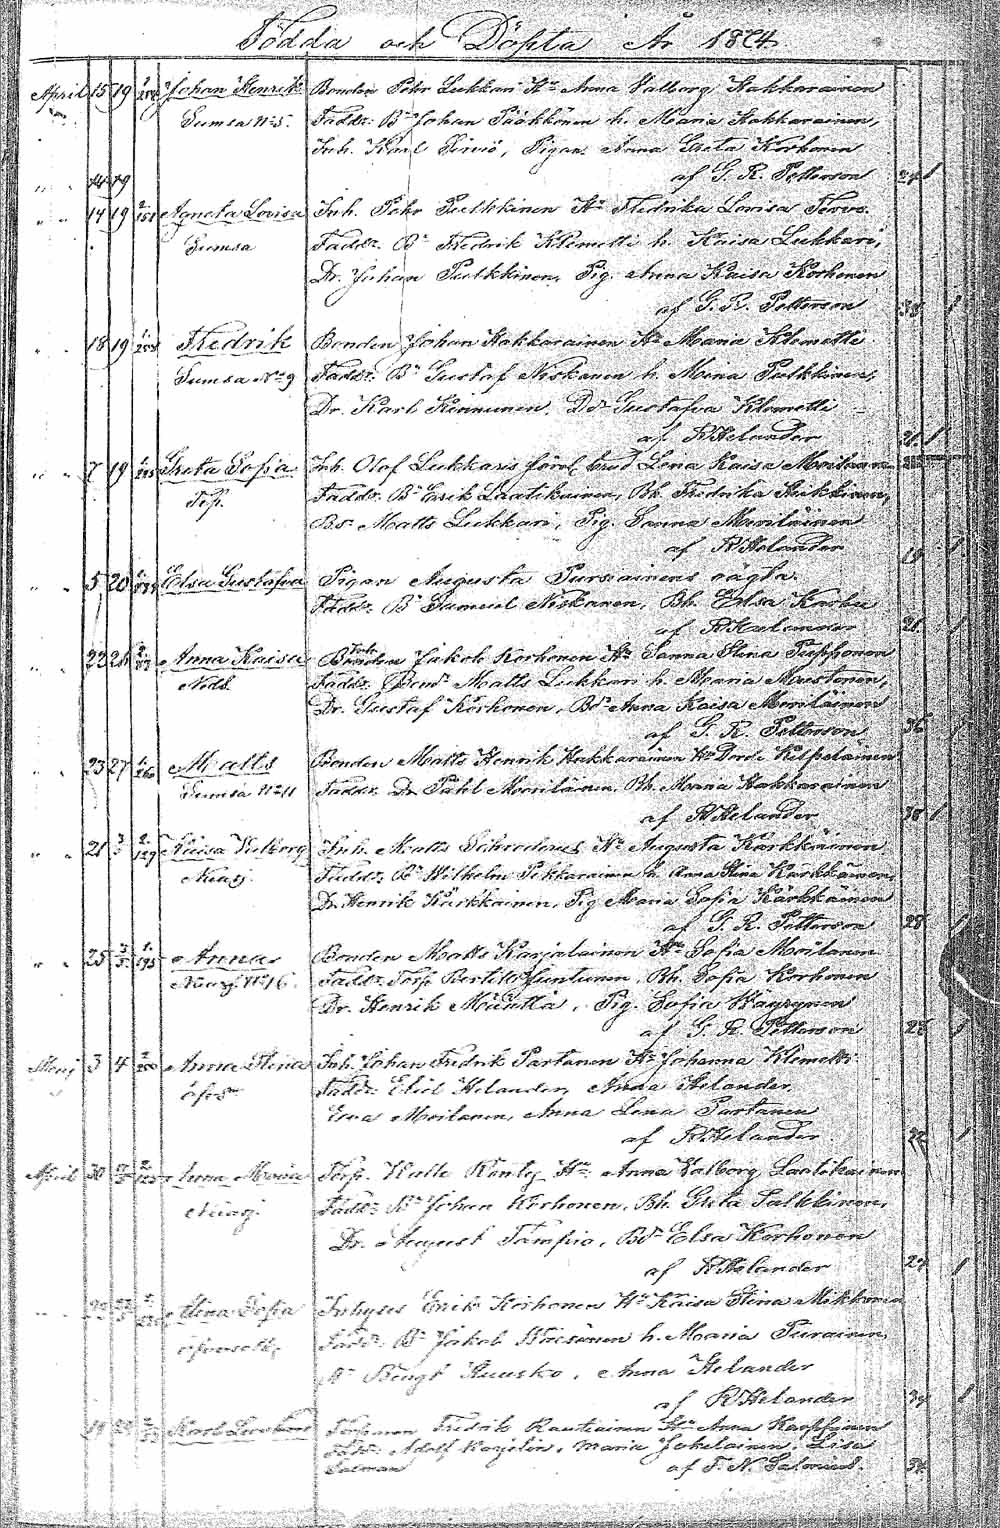 Födda och Döpta År 1874.
April 15 19 Johan Henrik Bonden Pehr Lukkari Hu Anna Valborg Hakkarainen
Sumsa No 5. Fadd: Bn Johan Pääkkönen h. Maria Hakkarainen,
Inh. Karl Sirviö, Pigan Anna Greta Korhonen
14 19 af G. R. Petterson 24
" " 14 19 Agneta Lovisa Inh. Pehr Pulkkinen Hu Fredrika Lovisa Tervo.
Sumsa Fadd: Bn Fredrik Klemetti h. Kaisa Lukkari,
Dr. Johan Pulkkinen, Pig. Anna Kaisa Korhonen
af G. R. Petterson 38
" " 18 19 Fredrik Bonden Johan Hakkarainen Hu Maria Klemetti
Sumsa No 9 Fadd: Bn Gustaf Niskanen h. Mina Pulkkinen,
Dr. Karl Kinnunen, Dr Gustafva Klemetti
af R Helander 21
" " 7 19 Greta Sofia Inh. Olof Lukkaris förol. brud Lena Kaisa Moilanen
Fadd: Bn Erik Laatikainen, Bh. Fredrika Heikkinen,
Bs. Matts Lukkari, Pig. Sanna Moiläinen
af R Helander 19
" " 5 20 Elsa Gustafva Pigan Augusta Pursiainens oägta.
Fadd: Bn Samuel Niskanen, Bh. Elsa Karhu
af R Helander 21
" " 22 26 Anna Kaisa Bonden Jakob Korhonen Hu Sanna Stina Tupponen
Fadd: Bond Matts Lukkari h. Maria Mustonen,
Dr. Gustaf Korhonen, Bd Anna Kaisa Moiläinen
af G. R. Petterson 36
" " 23 27 Matts Bonden Matts Henrik Hakkarainen Hu Dorde Kilpeläinen
Sumsa No 11 Fadd: Dr. Pahl Moilänen, Bh. Maria Hakkarainen
af R Helander 38
" " 21 Kaisa Valborg Inh. Matts Schroderus Hu Augusta Karkkäinen
Niasj. Fadd: Bn Wilhelm Pikkarainen h. Anna Stina Kärkkäinen,
Dr. Henrik Kärkkäinen, Pig Maria Sofia Kärkkäinen
af G. R. Petterson 28
" " 25 Anna Bonden Matts Karjalainen Hu Sofia Moilanen
Niasj. No 16. Fadd: Torp Bertil Juntunen, Bh. Sofia Korhonen
Dr. Henrik Mäntta, Pig. Sofia Wäyrynen
af G. R. Petterson 25
Maj 3 4 Anna Stina Inh. Johan Fredrik Partanen Hu Johanna Klemetti
Fadd: Eliel Helander, Anna Helander,
Ewa Moilanen, Anna Lena Partanen
af R Helander. 32
April 30 Anna Maria Torp. Kalle Ranty Hu Anna Valborg Laatikainen
Niasj. Fadd: Bn Johan Korhonen, Bh. Greta Pulkkinen,
Dr. August Tampio, Bd Elsa Korhonen
af R Helander 24
Stina Sofia Inhyses Erik Korhonen Hu Kaisa Stina Mikkonen
Fadd: Bn Jakob Väisänen h. Maria Purainen,
Bengt Kuusko, Anna Helander
af R Helander 39
Karl Torpman Fredrik Rautiainen Hu Anna Karppinen
Fadd: Adolf Karjelin, Maria Jokelainen, Lisa
Salman af F. N. Salenius. 34